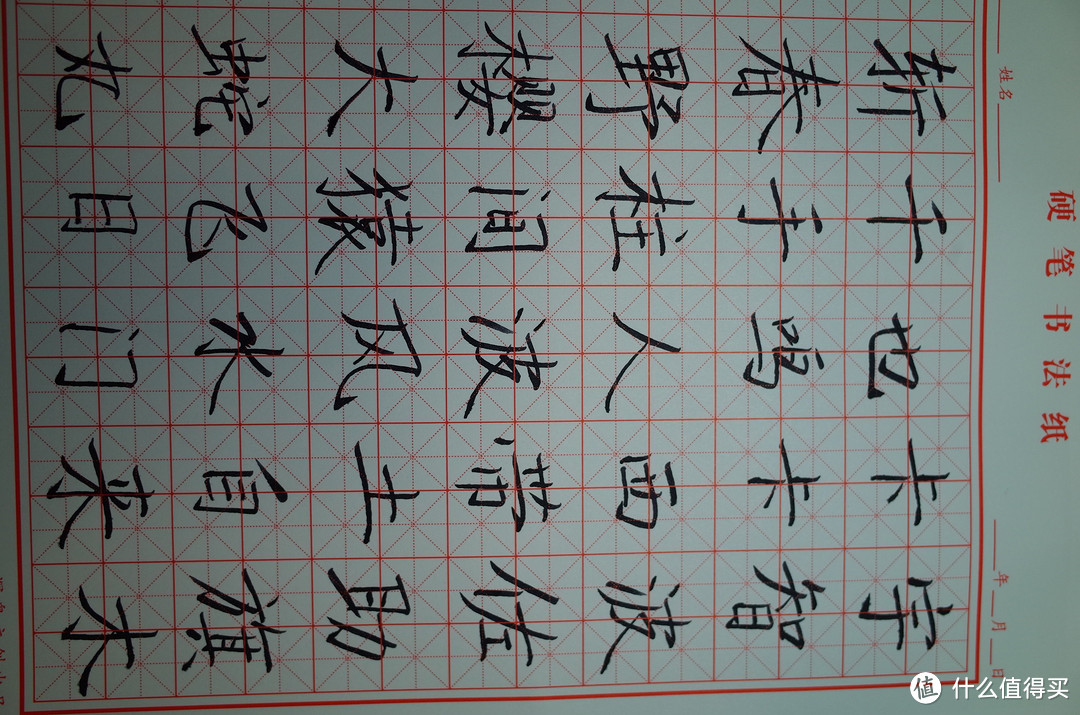 硬笔书法纸
姓名
年 月 日
宇智波佐助旗木
卡卡西带土自来
也鸣人波风水门
千手柱间猿飞日
斩春野樱大蛇丸
值 什么值得买